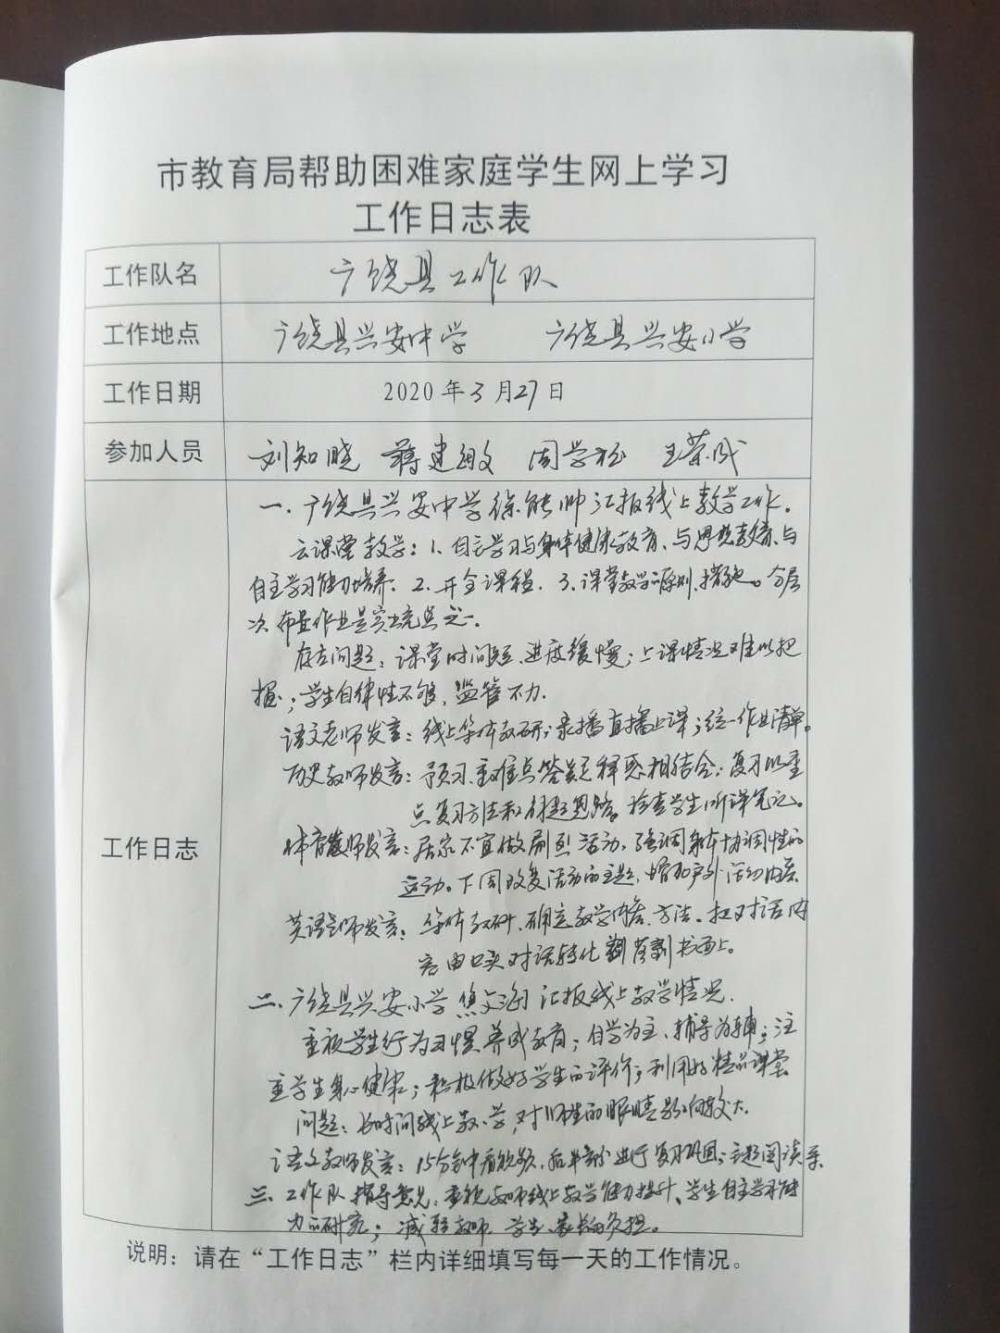 市教育局帮助困难家庭学生网上学习
工作日志表
工作队名 广饶县工作队
工作地点 广饶县兴安中学 广饶县兴安小学
工作日期 2020年3月27日
参加人员 刘知晓 蒋建敏 周学松 王荣成
工作日志
一、广饶县兴安中学徐能帅汇报线上教学工作。
云课堂教学：1、自主学习与身体健康教育、与思想教育、与
自主学习能力培养. 2.开全课程. 3.课堂教学原则、措施。分层
次布置作业是实施与之一.
存在问题：课堂时间短、进度缓慢；上课情况难以把
握；学生自律性不够，监管不力.
语文老师发言：线上集体教研；录播直播上课；统一作业清单。
历史教师发言：预习、重难点答疑释惑相结合；复习以重
点复习方法和解题思路。检查学生听课笔记。
体育教师发言：居家不宜做剧烈活动，强调身体协调性的
运动。下周改变活动的主题，增加户外活动内容
英语老师发言：集体教研，确定教学内容、方法、把对话内
容由口头对话转化到书面上。
二、广饶县兴安小学 汇报线上教学情况.
重视学生行为习惯养成教育；自学为主、辅导为辅；注
重学生身心健康；积极做好学生的评价；利用好精品课堂
问题：长时间线上教、学，对师生的眼睛影响较大.
语文教师发言：15分钟中看视频，后半部分进行复习巩固；主题阅读
三、工作队指导意见，重视教师线上教学能力提升、学生自主学习能
力的研究；减轻教师、学生、家长的负担。
说明：请在“工作日志”栏内详细填写每一天的工作情况。